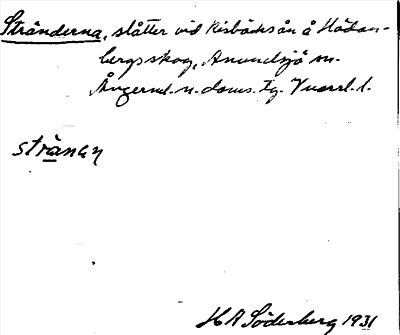 Stränderna, slåtter vid Risbäcksån å Hädan-
bergsskog, Anundsjö sn.
Ångerml. n. doms. tg. Vnorrl. l.
stränaŋ
H A Söderberg 1931